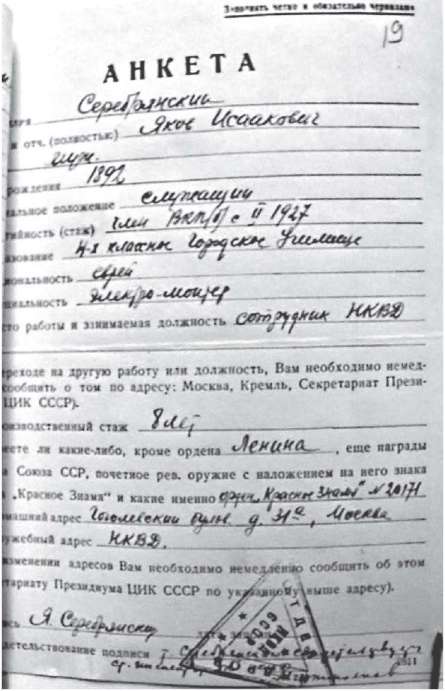 Заполнять четко и обязательно чернилами
19
АНКЕТА
Серебрянский
отч. (полностью) Яков Исаакович
муж.
рождения 1892
альное положение служащий
тийность (стаж) член ВКП(б) с II 1927
зование 4-х классное Городское Училище
иональность еврей
циальность электро-монтер
сто работы и занимаемая должность сотрудник НКВД
ереходе на другую работу или должность, Вам необходимо немед-
сообщить о том по адресу: Москва, Кремль, Секретариат Прези-
ЦИК СССР).
оизводственный стаж 8 лет
еете ли какие-либо, кроме ордена Ленина, еще награды
а Союза ССР, почетное рев. оружие с наложением на него знака
а „Красное Знамя" и какие именно орден „Красное Знамя" № 20171
машний адрес Гоголевский бульв. д. 31а, Москва
ужебный адрес НКВД.
изменения адресов Вам необходимо немедленно сообщить об этом
тариату Президиума ЦИК СССР по указанному выше адресу).
сь Я. Серебрянский
детельствование подписи т. Серебрянского